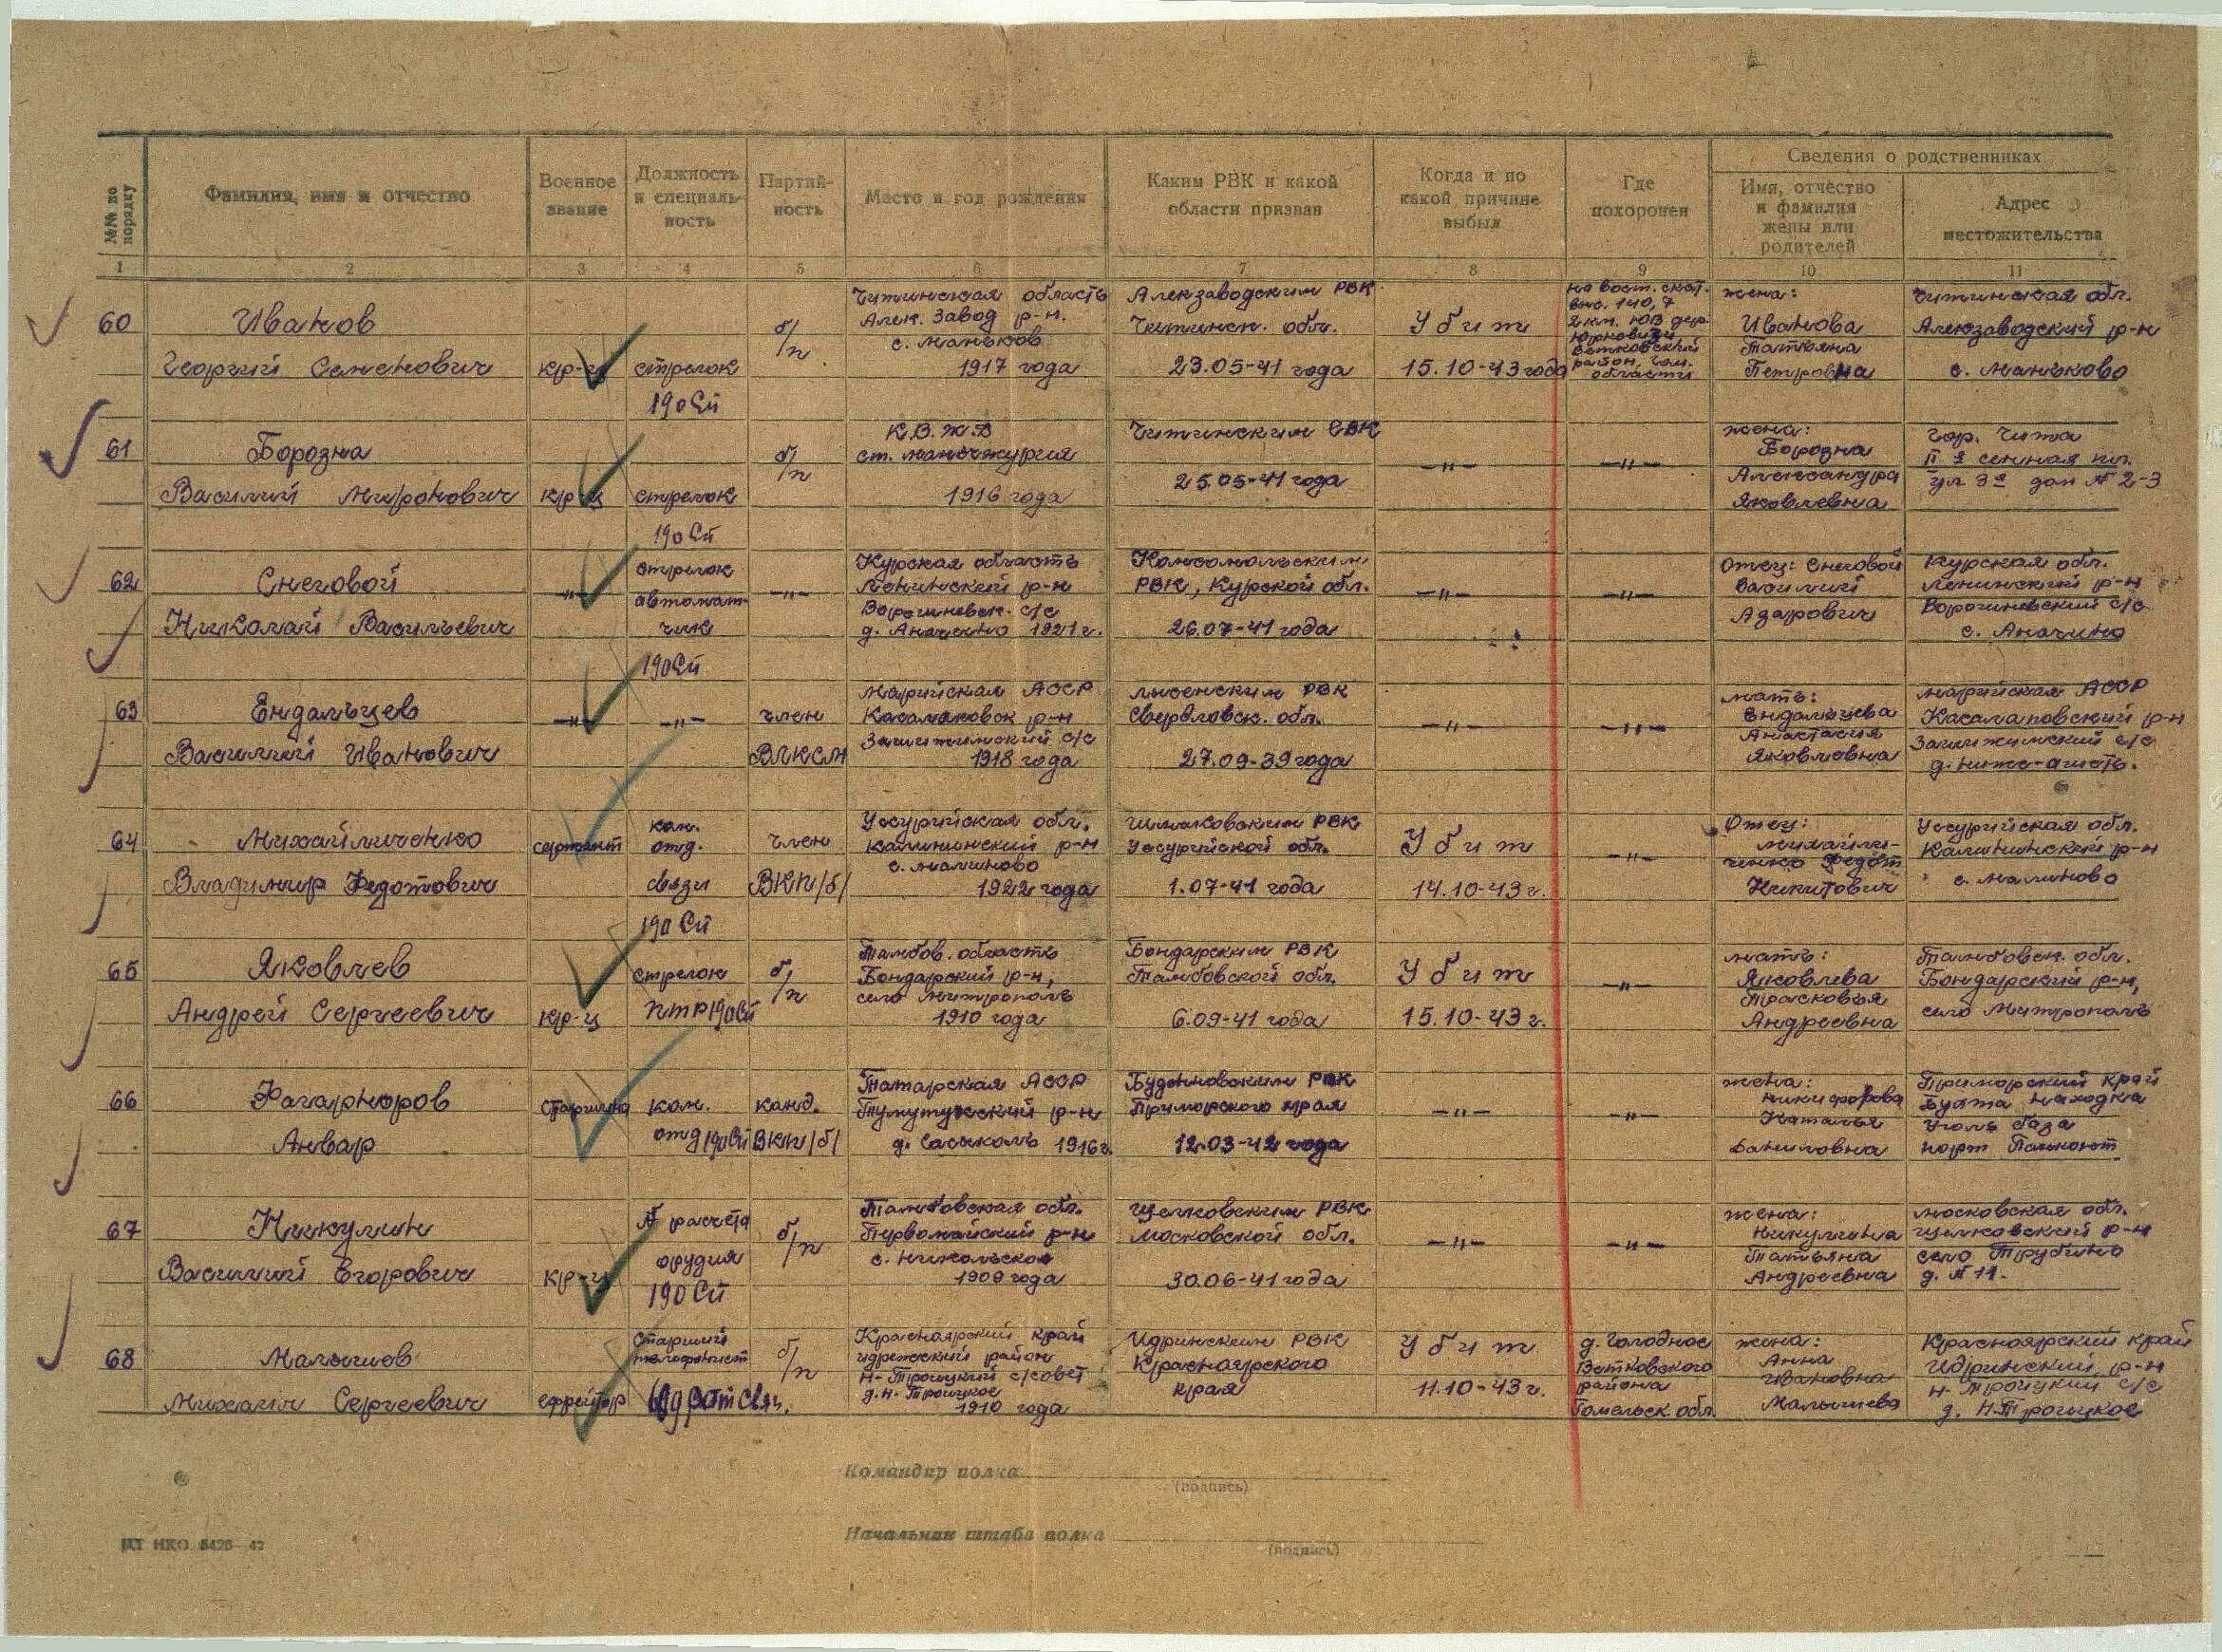 №№ по порядку
Фамилия, имя и отчество
Военное звание
Должность и специаль-ность
Партий-ность
Место и год рождения
Каким РВК и какой области призван
Когда и по какой причине выбыл
Где похоронен
Сведения о родственниках
Имя, отчество и фамилия жены или родителей
Адрес местожительства
1 2 3 4 5 6 7 8 9 10 11
60
Иванов
Георгий Семенович
кр-ц
стрелок
190 СП
б/п
Читинская область
Алек. Завод р-н.
с. Маньков
1917 года
Алекзаводским РВК
Читинск. обл.
23.05-41 года
Убит
15.10-43 года
на вост. скат.
выс. 140,7
2 км. ЮВ дер.
Юрковичи
Ветковский
район, Гом.
области
жена:
Иванова
Татьяна
Петровна
Читинская обл.
Алекзаводский р-н
с. Маньково
61
Борозна
Василий Миронович
кр-ц
стрелок
190 СП
б/п
К.В.Ж.Д
ст. Манчжургия
1916 года
Читинским СВК
25.05-41 года
—"—
—"—
жена:
Борозна
Александра
Яковлевна
гор. Чита
II я сенная пл.
ул 3я дом № 2-3
62
Снеговой
Николай Васильевич
—"—
стрелок
автомат-
чик
190 СП
—"—
Курская область
Ленинский р-н
Ворошневск. с/с
д. Аначино 1921 г.
Комсомольским
РВК, Курской обл.
26.07-41 года
—"—
—"—
Отец: Снеговой
Василий
Азарович
Курская обл.
Ленинский р-н
Ворошневский с/с
с. Аначино
63
Ендальцев
Василий Иванович
—"—
—"—
член
ВЛКСМ
Марийская АССР
Касамаковск р-н
1918 года
Лысенским РВК
Свердловск. обл.
27.09-39 года
—"—
—"—
мать:
Ендальцева
Анастасия
Яковлевна
Марийская АССР
64
Михайличенко
Владимир Федотович
сержант
ком.
отд.
связи
190 СП
член
ВКП/б/
Усурийская обл.
Калининский р-н
с. Малиново
1922 года
Шмаковским РВК
Усурийской обл.
1.07-41 года
Убит
14.10-43 г.
—"—
Отец:
Михайли-
ченко Федот
Никитович
Усурийская обл.
Калининский р-н
с. Малиново
65
Яковлев
Андрей Сергеевич
кр-ц
стрелок
ПТР 190 СП
б/п
Тамбов. область
Бондарский р-н,
село Митрополь
1910 года
Бондарским РВК
Тамбовской обл.
6.09-41 года
Убит
15.10-43 г.
—"—
мать:
Яковлева
Прасковья
Андреевна
Тамбовск. обл.
Бондарский р-н,
село Митрополь
66
Фагарноров
Анвар
старшина
ком.
отд 190 СП
канд.
ВКП/б/
Татарская АССР
д. Сасыколь 1916 г.
Буденновским РВК
Приморского края
12.03-42 года
—"—
—"—
жена:
Никифорова
Наталья
Даниловна
Приморский край
Бухта Находка
Уголь база
67
Никулин
Василий Егорович
кр-ц
№ расчета
орудия
190 СП
б/п
Тамбовская обл.
Первомайский р-н
с. Никольское
1909 года
Щелковским РВК
Московской обл.
30.06-41 года
—"—
—"—
жена:
Никулина
Татьяна
Андреевна
Московская обл.
Щелковский р-н
село Трубино
д. № 11.
68
Малышев
Михаил Сергеевич
ефрейтор
Старший
телефонист
б/п
Красноярский край
Идренский район
Н-Троицкий с/совет
д. Н-Троицкое
1910 года
Идринским РВК
Красноярского
края
Убит
11.10-43 г.
д. Голодное
Ветковского
района
Гомельск. обл.
жена:
Анна
Ивановна
Малышева
Красноярский край
Идринский р-н
Н-Троицкий с/с
д. Н.Троицкое
Командир полка
(подпись)
Начальник штаба полка
(подпись)